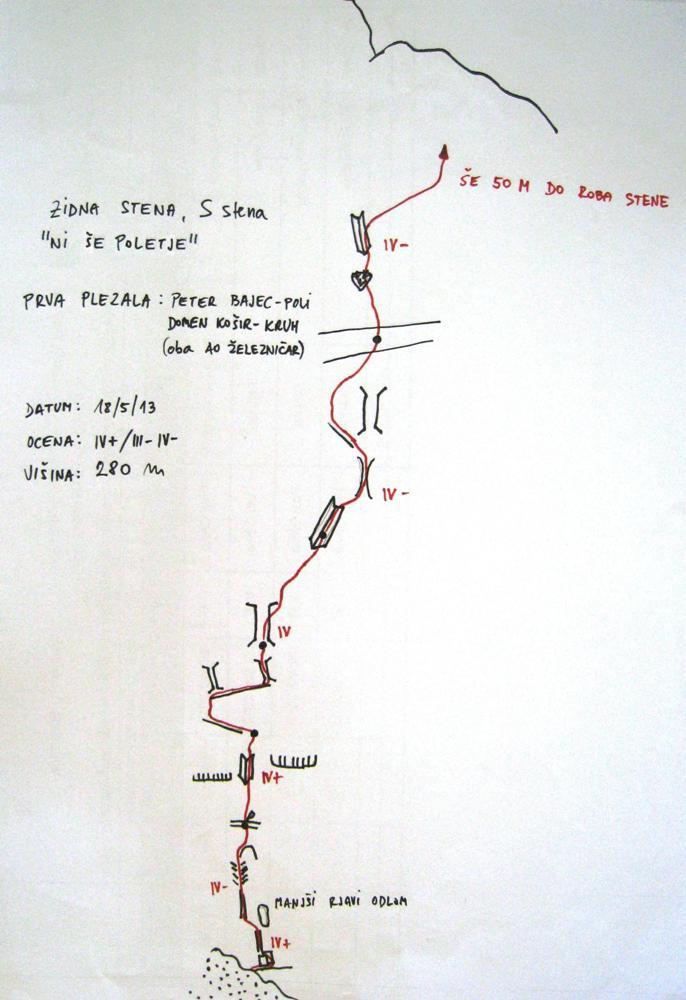 ŠE 50 M DO ROBA STENE
ŽIDNA STENA, S stena
"NI ŠE POLETJE"
IV-
PRVA PLEZALA: PETER BAJEC-POLI
DOMEN KOŠIR-KRUH
(oba AO ŽELEZNIČAR)
DATUM: 18/5/13
OCENA: IV+/III-IV-
VIŠINA: 280 m
IV-
IV
IV+
IV-
MANJŠI RJAVI ODLOM
IV+